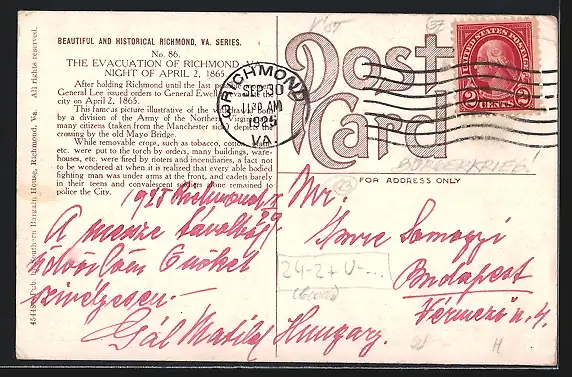 BEAUTIFUL AND HISTORICAL RICHMOND, VA. SERIES.
No. 86.
THE EVACUATION OF RICHMOND
NIGHT OF APRIL 2, 1865
After holding Richmond until the last
General Lee issued orders to General Ewell
city on April 2, 1865.
This famous picture illustrative of the
by a division of the Army of the Northern
many citizens (taken from the Manchester side) depicts the
crossing by the old Mayo Bridge.
While removable crops, such as tobacco, cotton,
etc. were put to the torch by orders, many buildings, ware-
houses, etc. were fired by rioters and incendiaries, a fact not
to be wondered at when it is realized that every able bodied
fighting man was under arms at the front, and cadets barely
in their teens and convalescent soldiers alone remained to
police the City.
Southern Bargain House, Richmond, Va. All rights reserved.
Post
Card
FOR ADDRESS ONLY
RICHMOND
SEP 30
AM
1925
VA.
UNITED STATES POSTAGE
2 CENTS 2
1925 Richmond
A messze távolból
üdvözlöm Önöket
szivélyesen.
Gál Matild
Mr.
Imre Somogyi
Budapest
Vérmező u. 4.
Hungary.
24-2+U-...